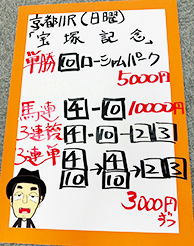 京都11R(日曜)
「宝塚記念」
単勝 10 ローシャムパーク
5000円
馬連 4-10 10000円
3連複 4-10-2 3
3連単 4 10→4 10→2 3
3000円
ずつ